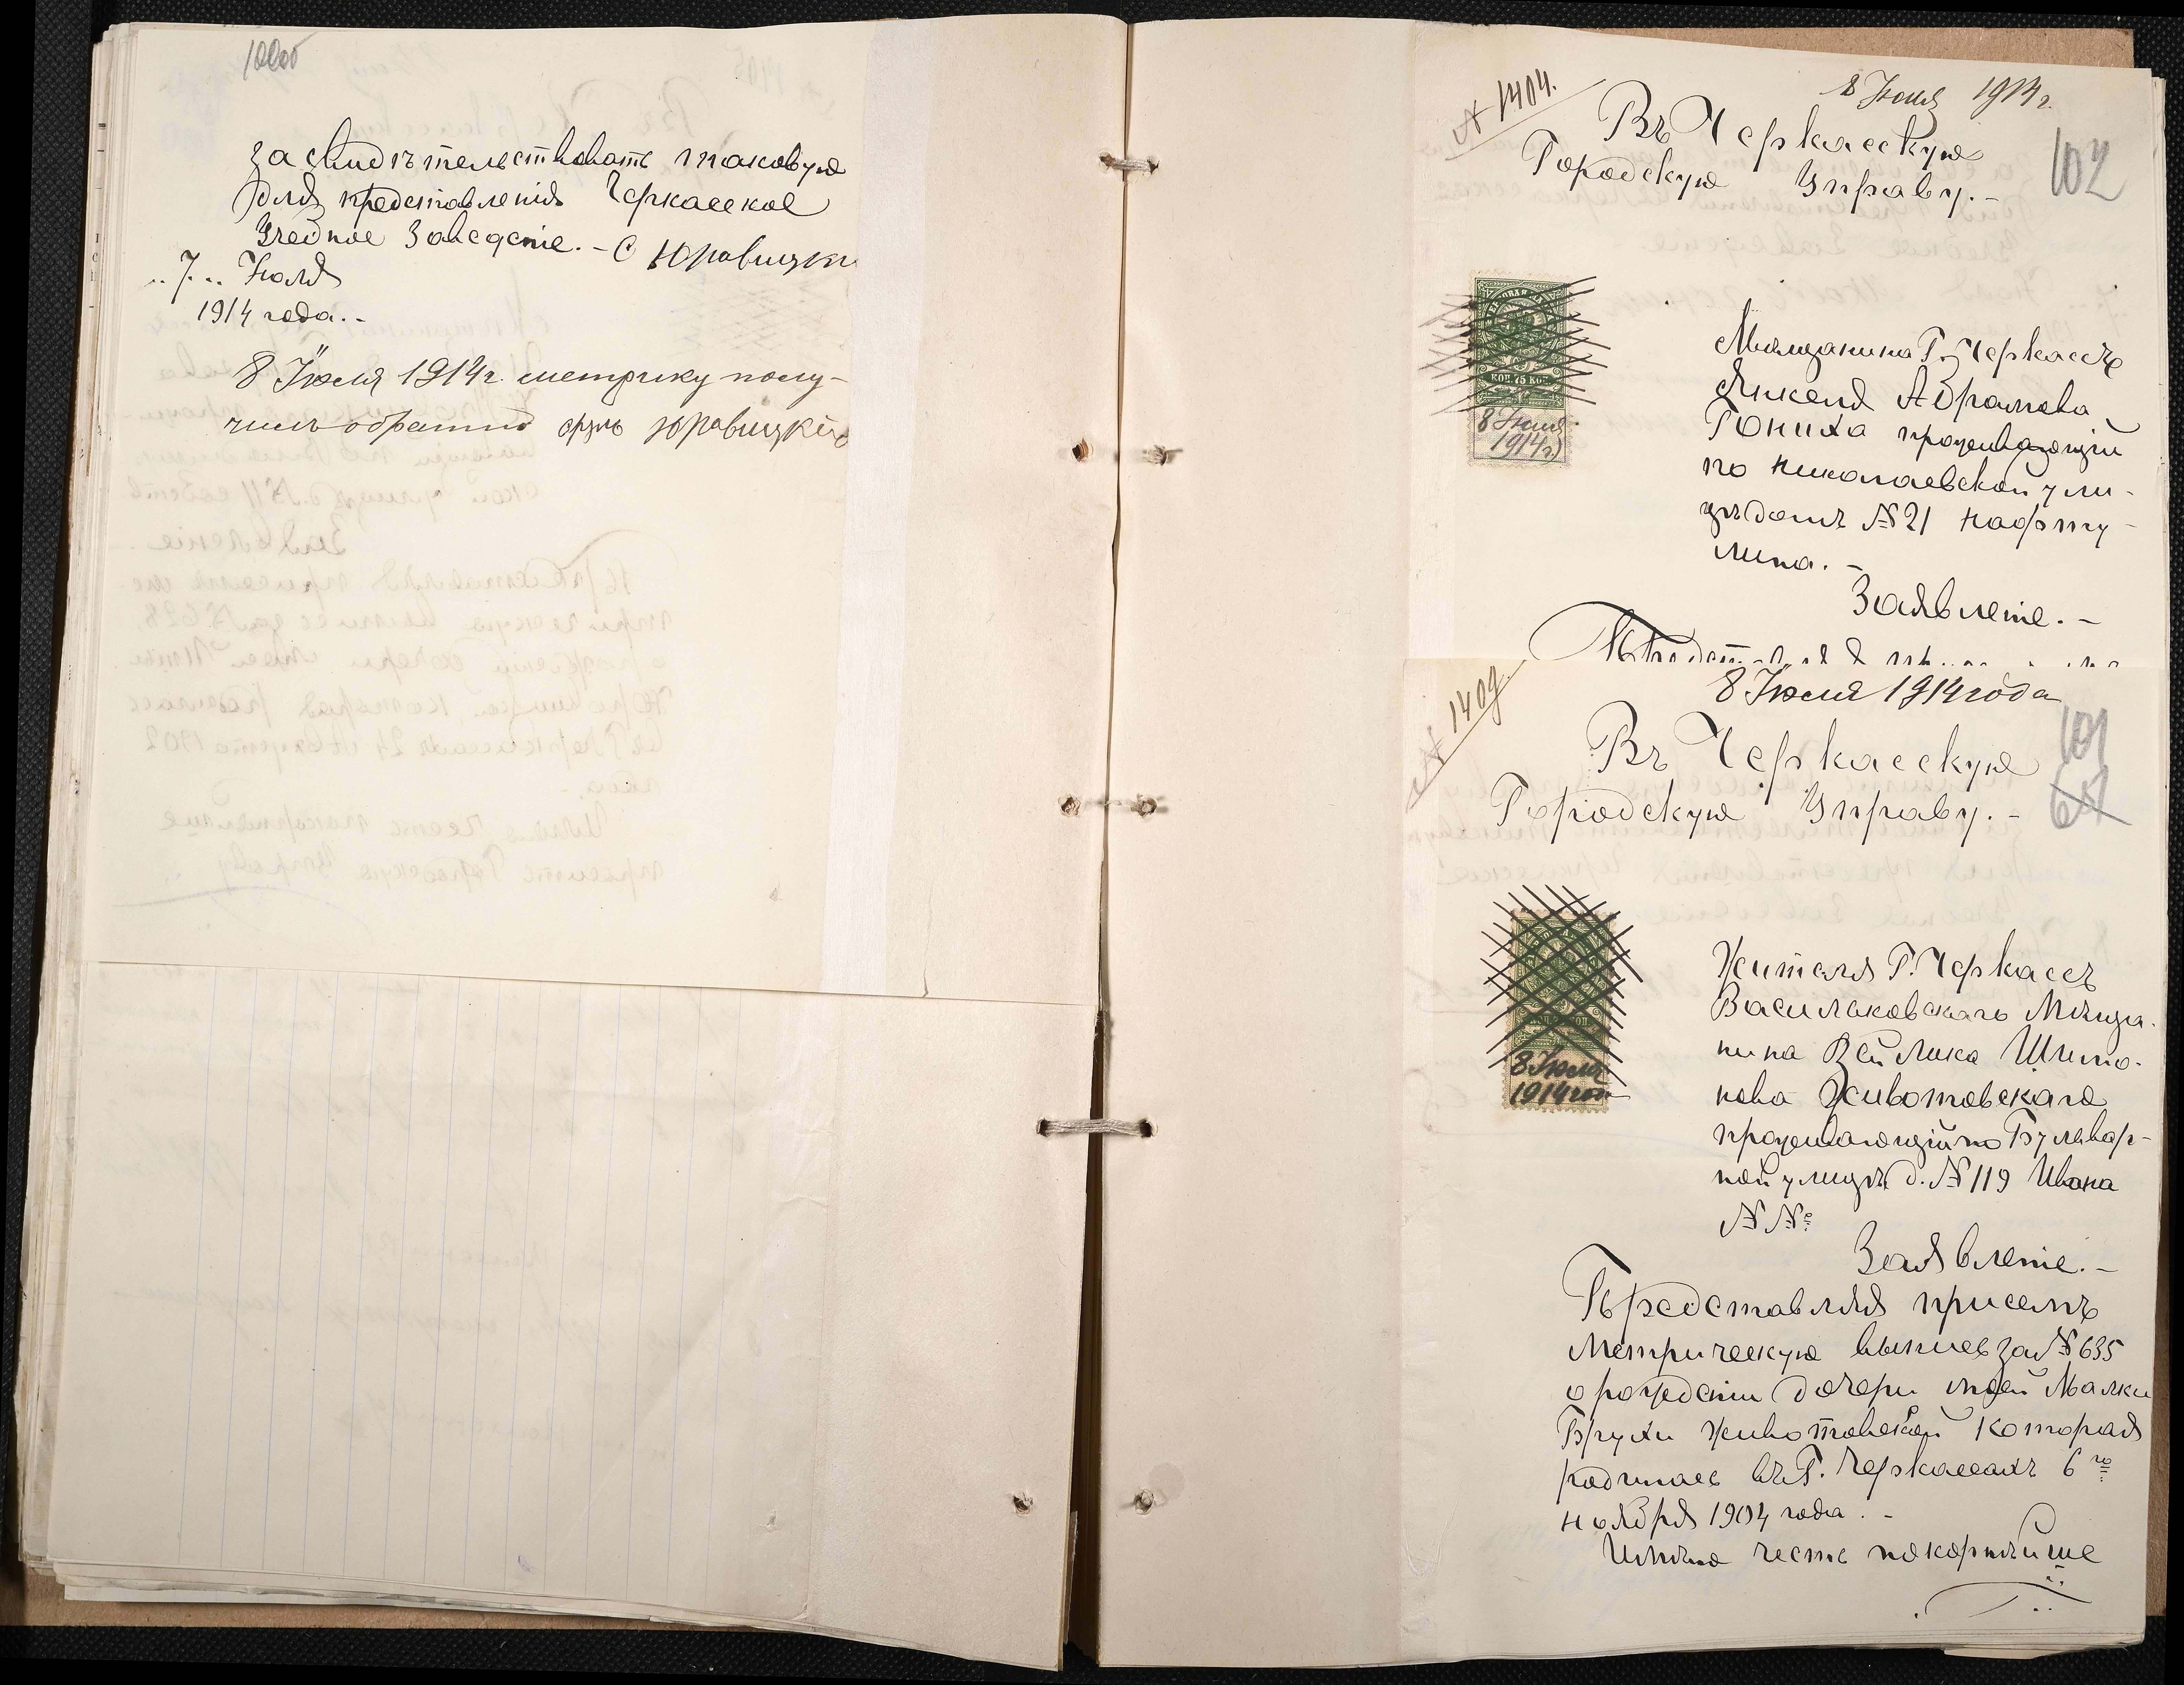 засвидѣтельствовать таковую
для представленія Черкасское
Учебное Заведеніе. – С Юравицки
„7„ Іюля
1914 года. –
8 Іюля 1914 г. метрику полу-
чилъ обратно Юравицкій
№ 1404.
8 Іюля 1914 г.
Въ Черкасскую
Городскую Управу. –
102
КОП. 75 КОП.
8 Іюля
1914 г.
Мѣщанина Г. Черкассъ
Янкеля Абрамова
Гониха проживающій
по Николаевской ули-
цѣ домъ № 21 Нафту-
лина. –
Заявленіе. –
№ 1409.
8 Іюля 1914 года
Въ Черкасскую
Городскую Управу. –
101
8 Іюля
1914 год
Жителя Г. Черкассъ
Васильковскаго Мѣща-
нина Вейлика Шимо-
нова Животовскаго
проживающій по Бульвар-
ной улицѣ д. № 119 Ивана
№ №
Заявленіе. –
Представляя присемъ
Метрическую выпись за № 635
о рожденіи дочери моей Малки
Брухи Животовской которая
родилась въ Г. Черкассахъ 6 го
ноября 1904 года. –
Имѣю честь покорнѣйше